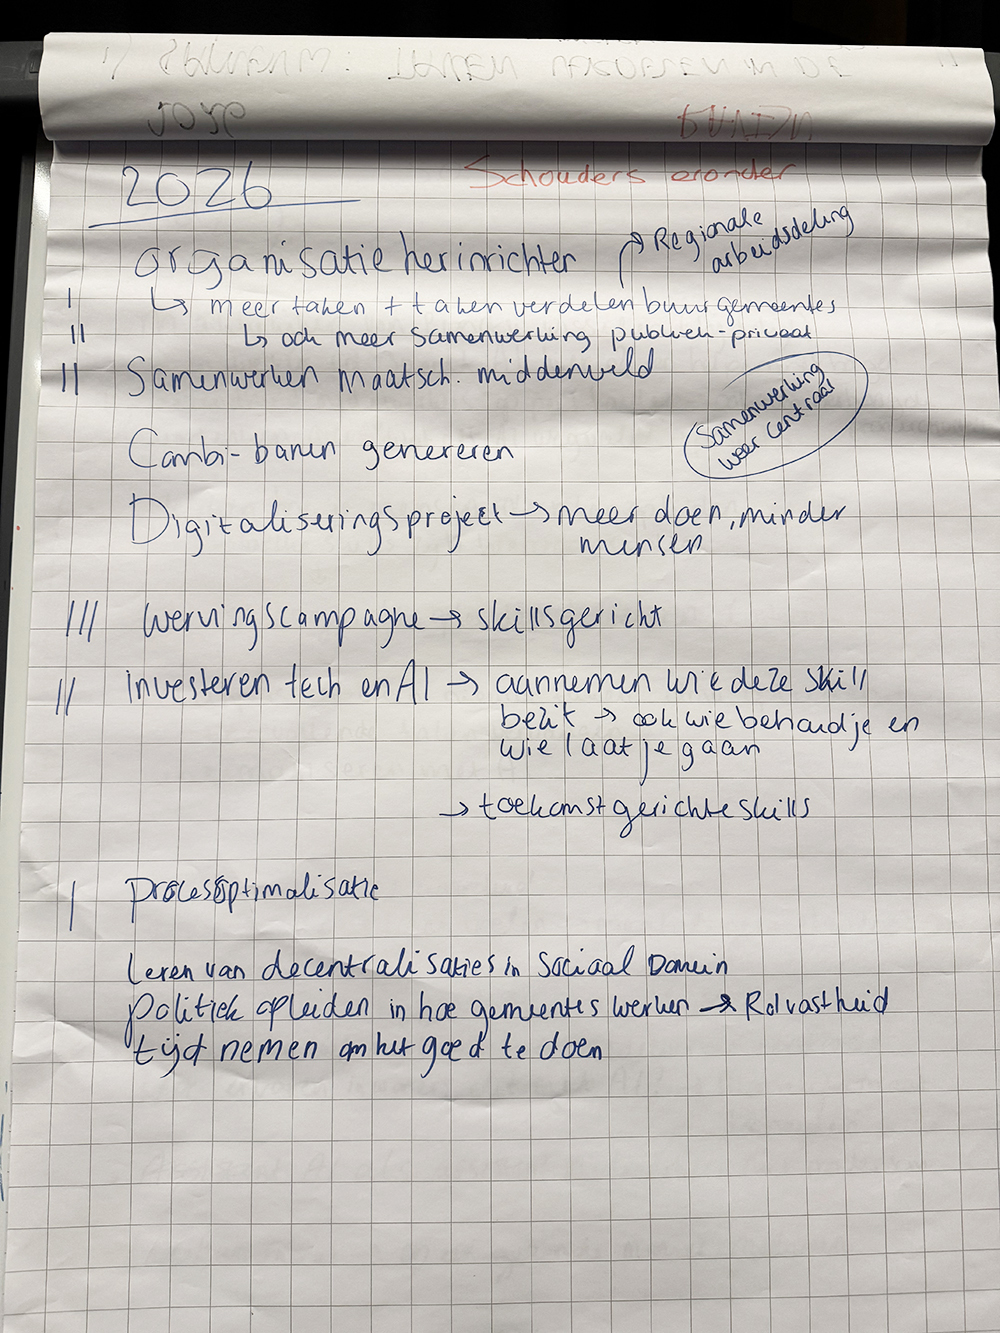 2026
Schouders eronder
organisatie herinrichter
→ Regionale
arbeidsdeling
I ↳ meer taken + taken verdelen buurgemeentes
II ↳ ook meer samenwerking publiek-privaat
II Samenwerken maatsch. middenveld
Samenwerking
weer centraal
Combi-banen genereren
Digitaliseringsproject → meer doen, minder
mensen
III wervingscampagne → skillsgericht
II investeren tech en AI → aannemen wie deze skill
bezit → ook wie behoud je en
wie laat je gaan
→ toekomstgerichte skills
I Procesoptimalisatie
Leren van decentralisaties in Sociaal Domein
Politiek opleiden in hoe gemeentes werken → Rolvastheid
tijd nemen om het goed te doen